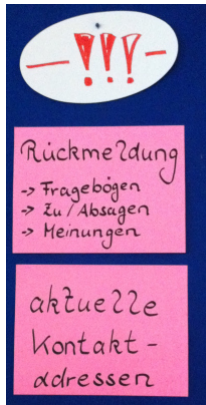 — !!! —
Rückmeldung
-> Fragebögen
-> Zu / Absagen
-> Meinungen
aktuelle
Kontakt-
adressen